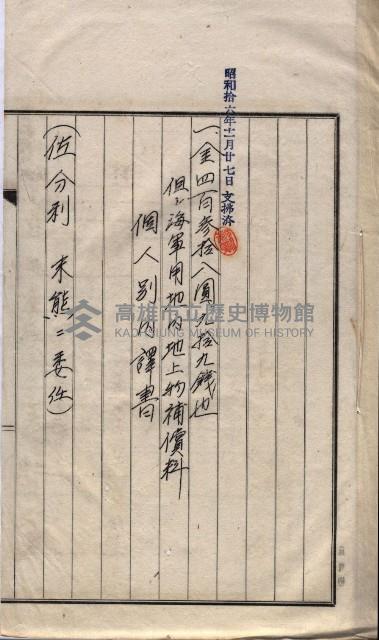 昭和拾六年十一月廿七日 支拂済
一、金四百参拾八圓九拾九錢也
但シ海軍用地内地上物補償料
個人別内譯書
(佐分利 末熊ニ委任)
高雄市立歷史博物館
KAOHSIUNG MUSEUM OF HISTORY